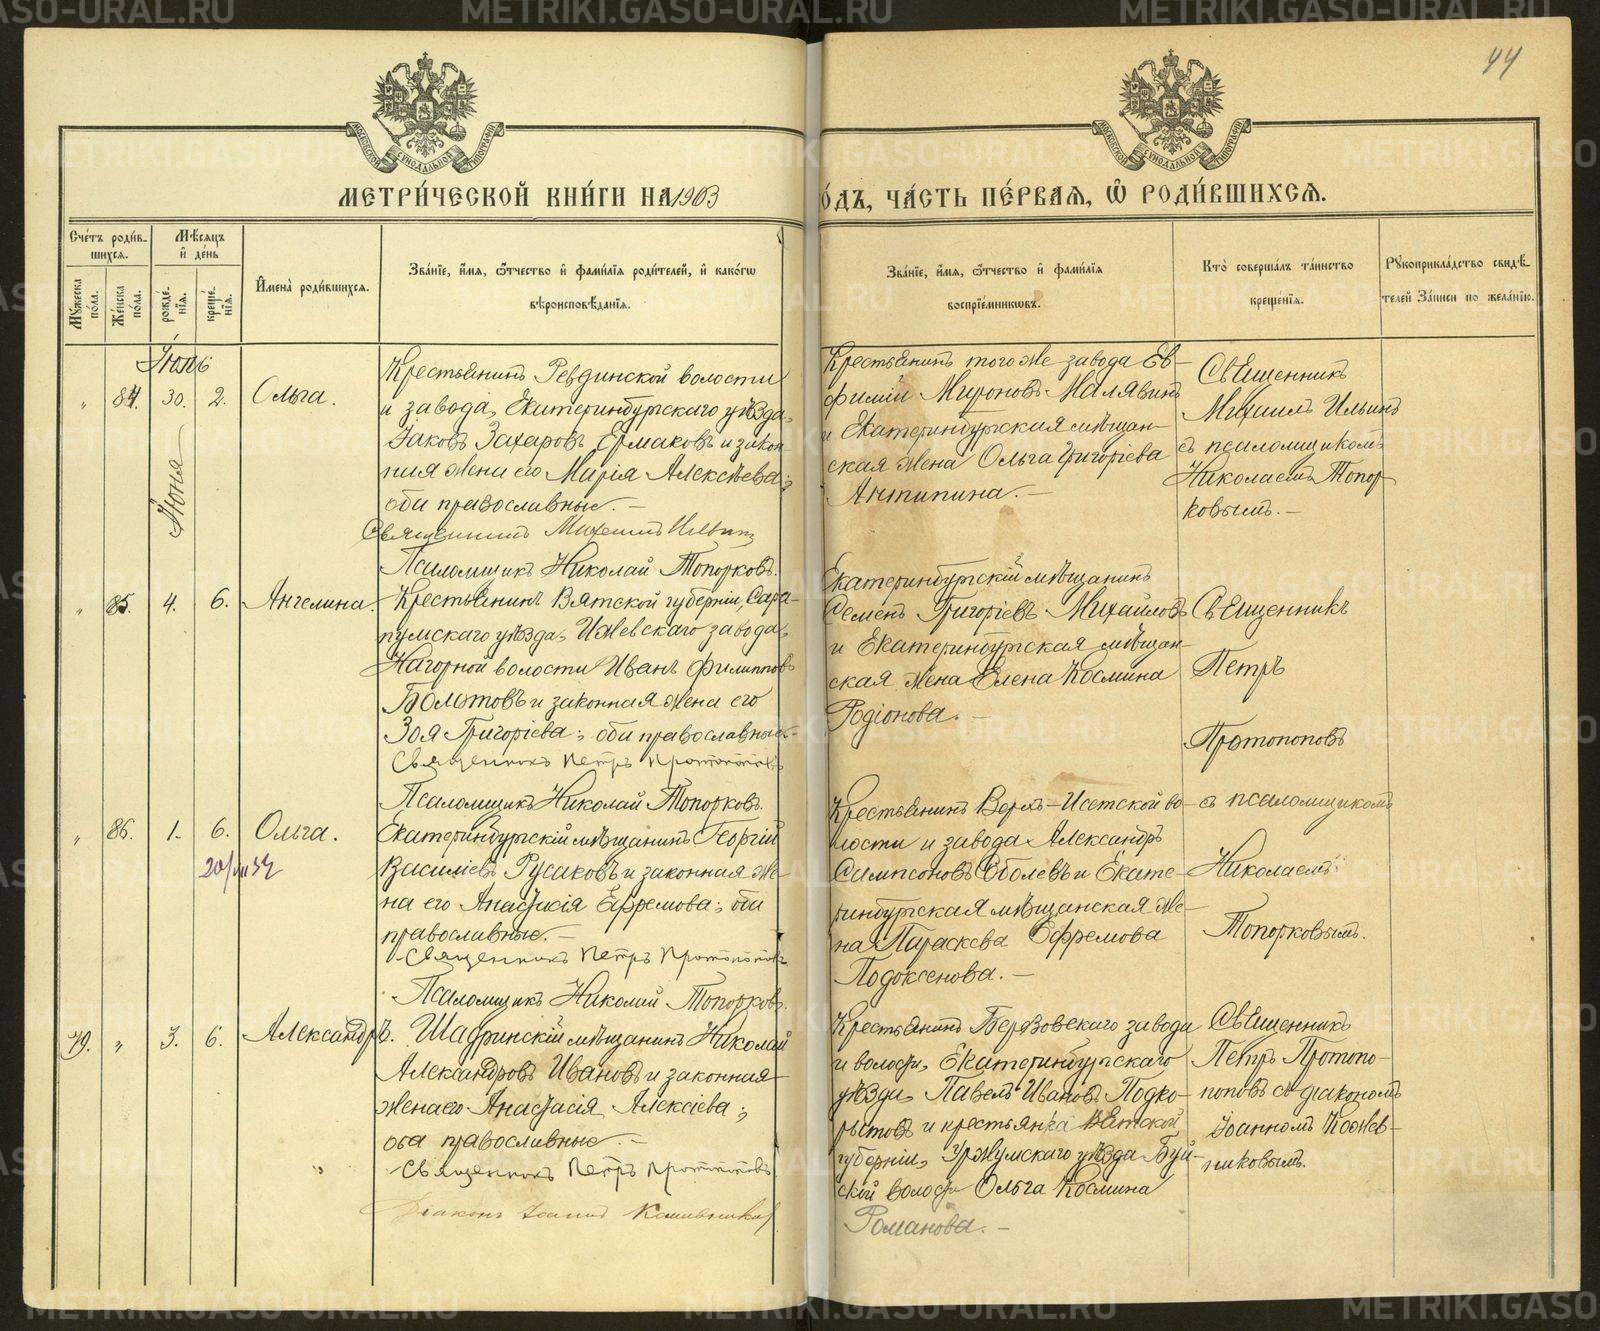 44
МЕТРИ́ЧЕСКОЙ КНИ́ГИ НА 1903
ОДЪ, ЧА́СТЬ ПЕ́РВАЯ, Ѿ РОДИ́ВШИХСЯ.
Сче́тъ роди́в-
шихся.
Мѣ́сяцъ
и҆ де́нь
Мꙋ́жеска
по́ла.
Же́нска
по́ла.
рожде́-
нїя.
креще́-
нїя.
И҆мена̀ роди́вшихся.
Зва́нїе, и҆́мя, ѻ҆́тчество и҆ фами́лїя роди́телей, и҆ како́гѡ
вѣроисповѣ́данїя.
Зва́нїе, и҆́мя, ѻ҆́тчество и҆ фами́лїя
восприе́мникѡвъ.
Кто̀ соверша́лъ та́инство
креще́нїя.
Рꙋкоприкла́дство свидѣ́-
телей за́писи по жела́нїю.
Іюнь
Іюня
" 84 30. 2. Ольга.
Крестьянинъ Ревдинской волости
и завода, Екатеринбургскаго уѣзда,
Іаковъ Захаровъ Ермаковъ и закон-
ная жена его Марія Алексѣева;
оба православные. —
Священникъ Михаилъ Ильинъ
Псаломщикъ Николай Топорковъ.
Крестьянинъ того же завода Ев-
фимій Мироновъ Малявинъ
и Екатеринбургская мѣщан-
ская жена Ольга Григоріева
Антипина. —
Священникъ
Михаилъ Ильинъ
съ псаломщикомъ
Николаемъ Топор-
ковымъ. —
" 85. 4. 6. Ангелина.
Крестьянинъ Вятской губерніи, Сара-
пульскаго уѣзда, Ижевскаго завода,
Нагорной волости Иванъ Филипповъ
Болотовъ и законная жена его
Зоя Григоріева; оба православные. —
Священникъ Петръ Протопоповъ
Псаломщикъ Николай Топорковъ.
Екатеринбургскій мѣщанинъ
Семенъ Григоріевъ Михайловъ
и Екатеринбургская мѣщан-
ская жена Елена Космина
Родіонова. —
Священникъ
Петръ
Протопоповъ
съ псаломщикомъ
Николаемъ
Топорковымъ.
" 86. 1. 6. Ольга.
Екатеринбургскій мѣщанинъ Георгій
Василіевъ Русаковъ и законная же-
на его Анастасія Ефремова; оба
православные. —
Священникъ Петръ Протопоповъ
Псаломщикъ Николай Топорковъ.
Крестьянинъ Верхъ-Исетской во-
лости и завода Александръ
Сампсоновъ Соболевъ и Екате-
ринбургская мѣщанская же-
на Параскева Ефремова
Подоксенова. —
79. " 3. 6. Александръ.
Шадринскій мѣщанинъ Николай
Александровъ Ивановъ и законная
жена его Анастасія Алексіева;
оба православные. —
Священникъ Петръ Протопоповъ
Діаконъ Іоаннъ Кожевниковъ
Крестьянинъ Березовскаго завода
и волости, Екатеринбургскаго
уѣзда, Павелъ Ивановъ Подко-
рытовъ и крестьянка Вятской
губерніи, Уржумскаго уѣзда Буй-
ской волости Ольга Космина
Романова. —
Священникъ
Петръ Протопо-
повъ съ діакономъ
Іоанномъ Кожев-
никовымъ.
METRIKI.GASO-URAL.RU